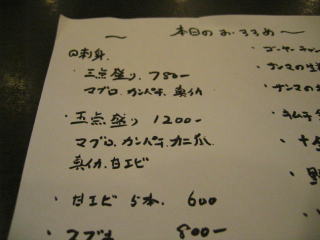 〜 本日のおすすめ 〜
◎刺身
・三点盛り 780-
マグロ、カンパチ、真イカ
・五点盛り 1200-
マグロ、カンパチ、カニ爪
真イカ、甘エビ
・甘エビ 5本 600
・マグロ 800-
・ゴーヤーチャン
・サンマの
・サンマの
・キムチ